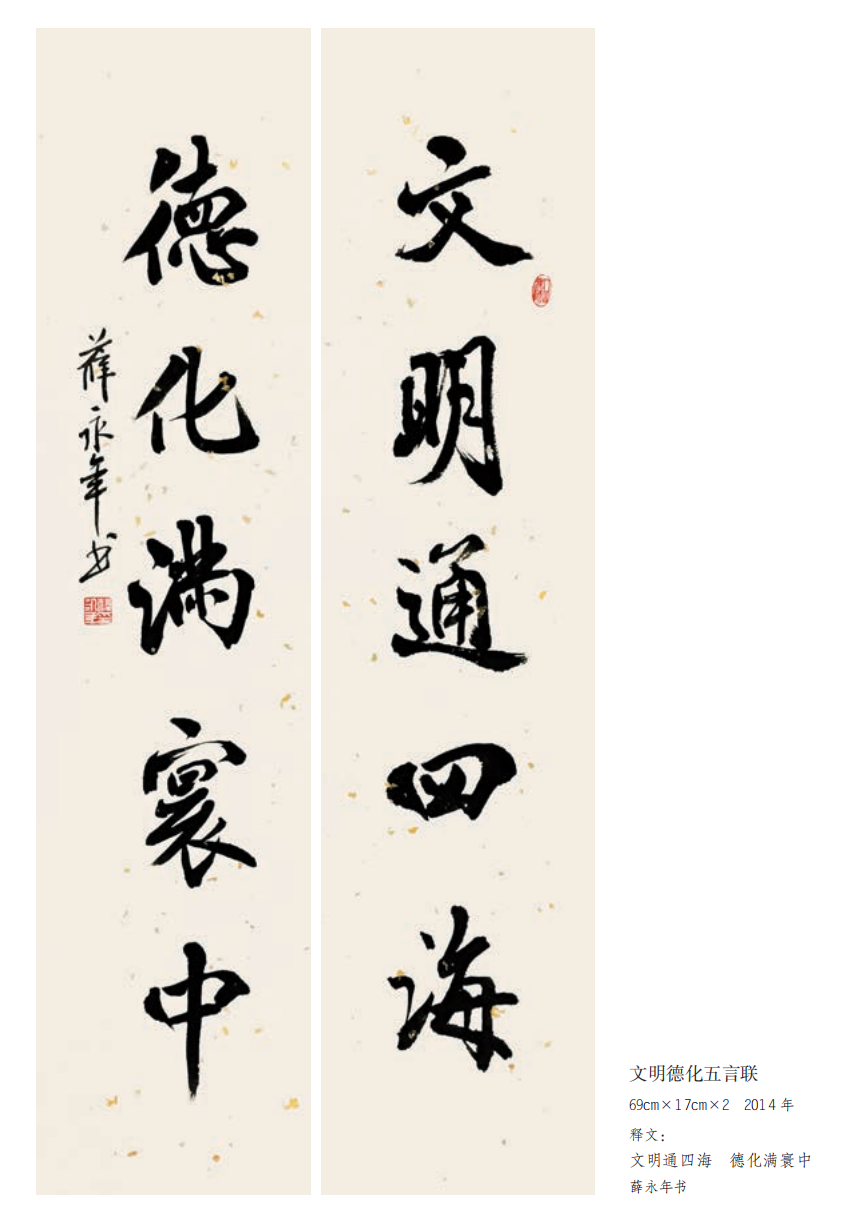 文明通四海
德化满寰中
薛永年书
文明德化五言联
69cm×17cm×2 2014年
释文：
文明通四海 德化满寰中
薛永年书